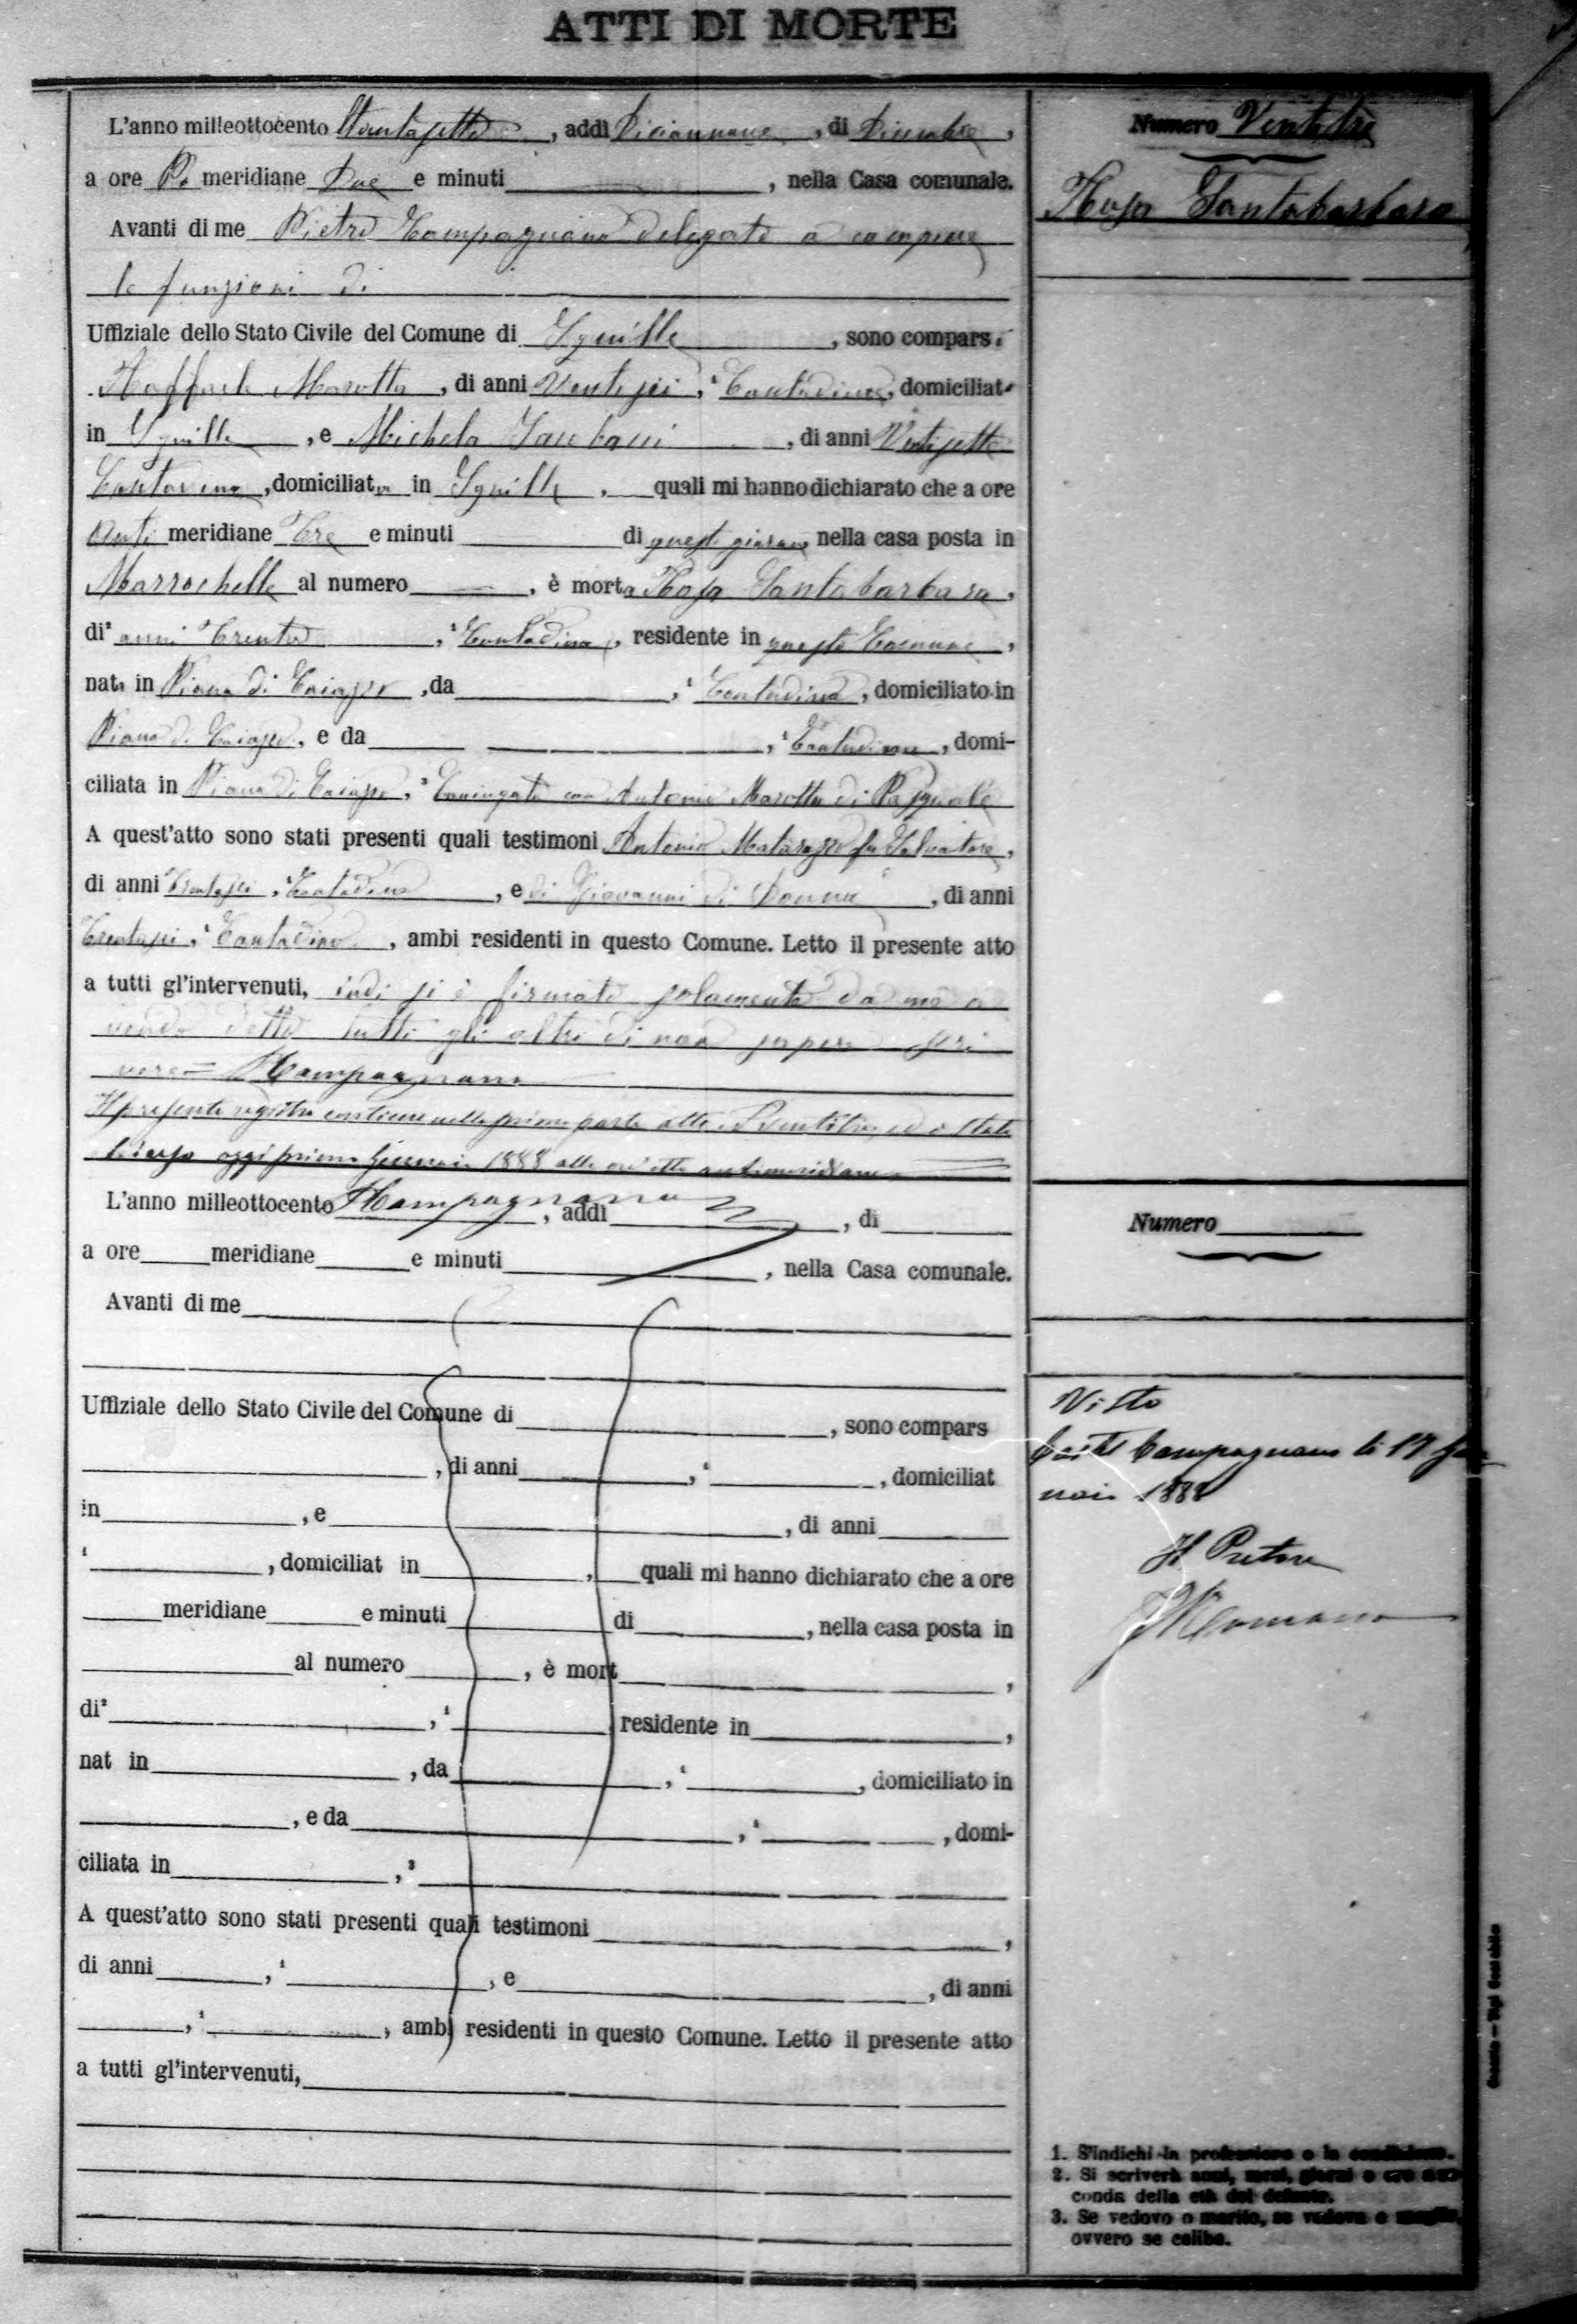 ATTI DI MORTE
L'anno milleottocento ottantasette, addì Diciannove, di Dicembre,
a ore Po meridiane Due e minuti, nella Casa comunale.
Avanti di me Pietro Campagnano delegato a compiere
le funzioni di
Uffiziale dello Stato Civile del Comune di Squille, sono compars
Raffaele Marotta, di anni Ventisei, ¹ Contadino, domiciliat
in Squille, e Michela, di anni Ventisette
Contadina, domiciliata in Squille, quali mi hanno dichiarato che a ore
Anti meridiane Tre e minuti di questo giorno, nella casa posta in
Marrochelle al numero, è morta Rosa Santabarbara,
di² anni Trenta, ¹ Contadina, residente in questo Comune,
nata in Piana di Caiazzo, da, ¹ Contadino, domiciliato in
Piana di Caiazzo, e da, ¹ Contadina, domi-
ciliata in Piana di Caiazzo, ³ Coniugata con Antonio Marotta di Pasquale
A quest'atto sono stati presenti quali testimoni Antonio Matarazzo fu Salvatore,
di anni Trentasei, ¹ Contadino, e di Giovanni di Donna, di anni
Trentasei, ¹ Contadino, ambi residenti in questo Comune. Letto il presente atto
a tutti gl'intervenuti, indi si è firmato solamente da me a
vendo detto tutti gli altri di non sapere scri
vere = PCampagnano
Il presente registro contiene nella prima parte atti ventitre ed è stato
chiuso oggi primo Gennaio 1888 alle ore otto antimeridiane
PCampagnano
L'anno milleottocento, addì, di
a ore meridiane e minuti, nella Casa comunale.
Avanti di me
Uffiziale dello Stato Civile del Comune di, sono compars
, di anni, ¹, domiciliat
in, e, di anni
¹, domiciliat in, quali mi hanno dichiarato che a ore
meridiane e minuti di, nella casa posta in
al numero, è mort,
di², ¹ residente in,
nat in, da, ¹, domiciliato in
, e da, ¹, domi-
ciliata in, ³
A quest'atto sono stati presenti quali testimoni,
di anni, ¹, e, di anni
, ¹, ambi residenti in questo Comune. Letto il presente atto
a tutti gl'intervenuti,
Numero Ventitre
Rosa Santabarbara
Numero
Visto
Castel Campagnano li 17 Gen
naio 1888
Il Pretore
1. S'indichi la professione o la condizione.
2. Si scriverà anni, mesi, giorni o ore se-
conda della età del defunto.
3. Se vedovo o marito, se vedova o moglie,
ovvero se celibe.